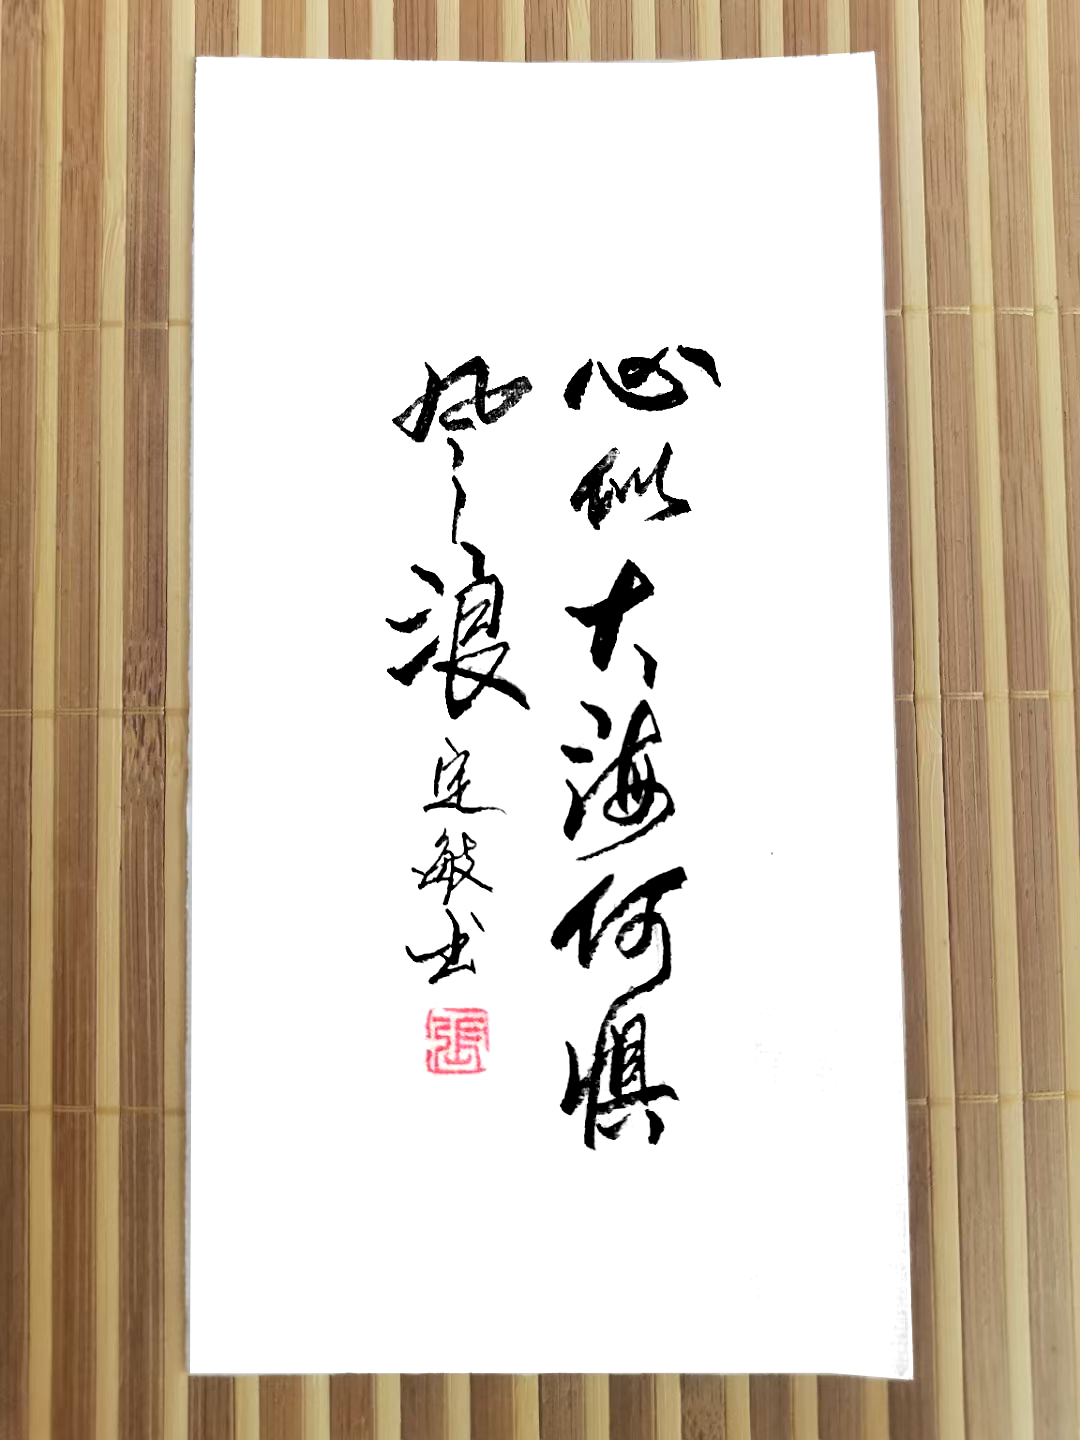 心似大海何惧
风浪 定敏书
張